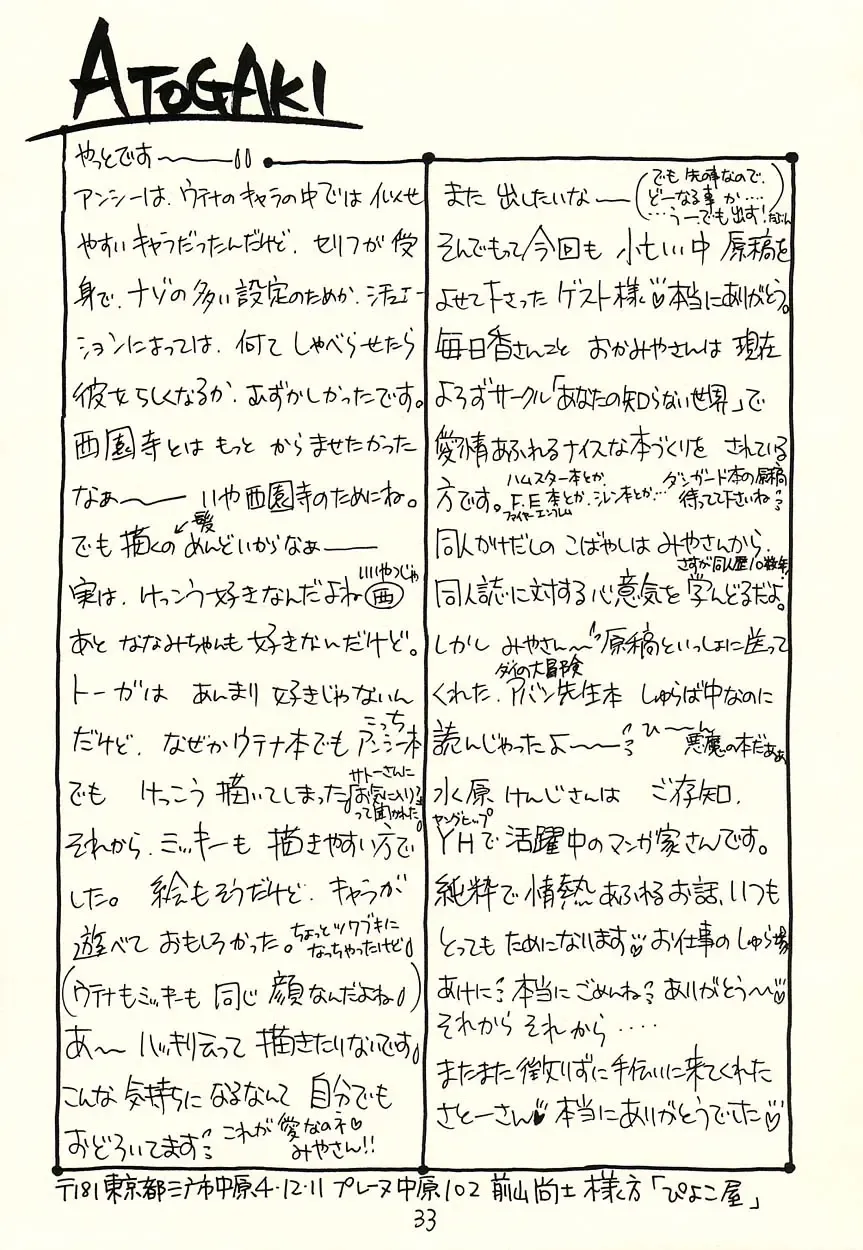 ATOGAKI
やっとです〜
アンシーは、ウテナのキャラの中では似せ
やすいキャラだったんだけど、セリフが受
身で、ナゾの多い設定のためか、シチュエー
ションによっては、何て しゃべらせたら
彼女らしくなるか、むずかしかったです。
西園寺とは もっと からませたかった
なぁ〜 いや西園寺のためにね。
でも描くの めんどいからなぁ—
←髪
実は、けっこう好きなんだよね 西
いいやつじゃ
あと ななみちゃんも 好きなんだけど。
トーガは あんまり 好きじゃないん
だけど、なぜかウテナ本でも アンシー本
こっち
でも けっこう 描いてしまった
サトーさんに
お気に入り?
って聞かれた。
それから、ミッキーも 描きやすい方で
した。 絵もそうだけど、キャラが
遊べて おもしろかった。
ちょっとツワブキに
なっちゃったけど
(ウテナもミッキーも 同じ 顔なんだよね)
あ〜 ハッキリ云って 描きたりないです
こんな 気持ちに なるなんて 自分でも
おどろいてます
これが 愛なのネ♡
みやさん!!
また 出したいな—
(でも 先の事なので、
どーなる事 か‥‥
‥‥うーでも出す!たぶん)
そんでもって今回も 忙しい中 原稿を
よせて下さった ゲスト様♡本当にありがとう。
毎日香さんこと おかみやさんは 現在
よろずサークル「あなたの知らない世界」で
愛情あふれるナイスな本づくりを されている
方です。
ハムスター本とか、
F.E本とか、シレン本とか‥
ファイヤーエンブレム
ダンガード本の原稿
待ってて下さいね
同人かけだしの こばやしは みやさんから、
さすが同人歴10数年!
同人誌に対する心意気を 学んどるだよ。
しかし みやさん〜 原稿といっしょに送って
くれた、アバン先生本 しゅらば中なのに
ダイの大冒険
読んじゃったよ〜
ひ〜ん
悪魔の本だぁぁ
水原 けんじさんは ご存知、
YHで 活躍中のマンガ家さんです。
ヤングヒップ
純粋で 情熱あふれるお話、いつも
とっても ためになります♡ お仕事の しゅら場
あけに 本当に ごめんね ありがとう〜♡
それから それから‥‥
またまた 懲りずに 手伝いに来てくれた
さとーさん♥ 本当にありがとうでした♡
〒181 東京都三鷹市中原4・12・11 プレーヌ中原102 前山尚士 様方「ぴよこ屋」
33